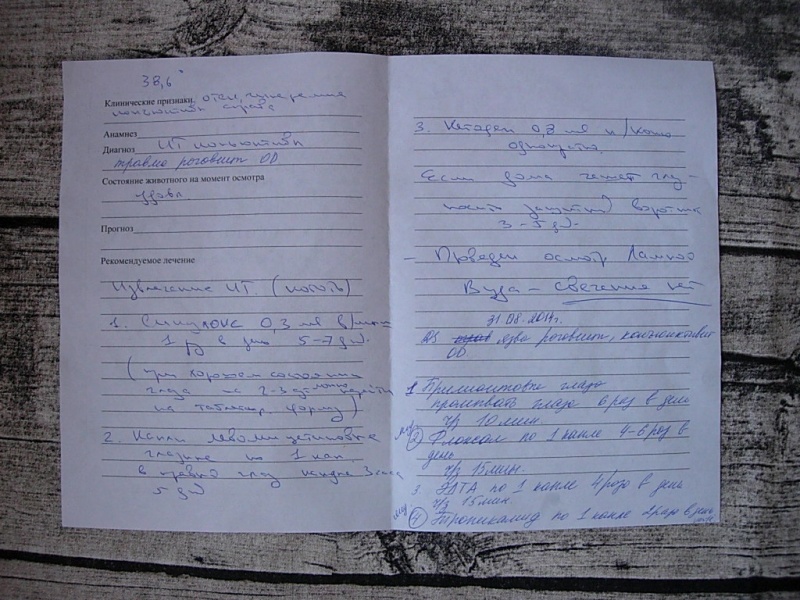 38,6°
Клинические признаки отек, гиперемия
конъюнктивы справа
Анамнез
Диагноз ИТ конъюнктивы
травма роговицы OD
Состояние животного на момент осмотра
удовл.
Прогноз
Рекомендуемое лечение
Извлечение ИТ (коготь)
1. Синулокс 0,3 мл в/мыш
1 р в день 5-7 дн.
(при хорошем состоянии
глаза на 2-3 д можно перейти
на таблетир. форму)
2. Капли левомицетиновые
глазные по 1 кап.
в правый глаз каждые 3 часа
5 дн
3. Кетоджект 0,2 мл п/кожно
однократно.
Если дома чешет глаз -
носить защитный воротник
3-5 дн.
- Проведен осмотр Лампой
Вуда - свечения нет
31.08.2017г.
DS язва роговицы, конъюнктивит
OD
1 Перемонтовые глаза
промывать глаза 6 раз в день
ч/з 10 мин.
2 Флоксал по 1 капле 4-6 раз в
день
ч/з 15 мин.
3. ЭДТА по 1 капле 4 раза в день
ч/з 15 мин.
4 Тропикамид по 1 капле 2 раза в день